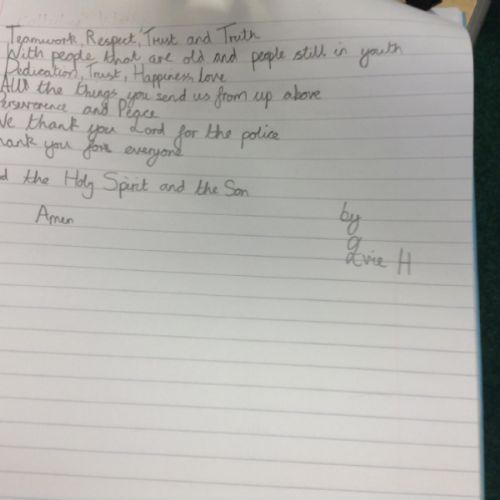 Teamwork, Respect, Trust and Truth
With people that are old and people still in youth
Dedication, Trust, Happiness, Love
All the things you send us from up above
Perserverence and Peace
We thank you Lord for the police
hank you for everyone
d the Holy Spirit and the Son
Amen
by
Evie H